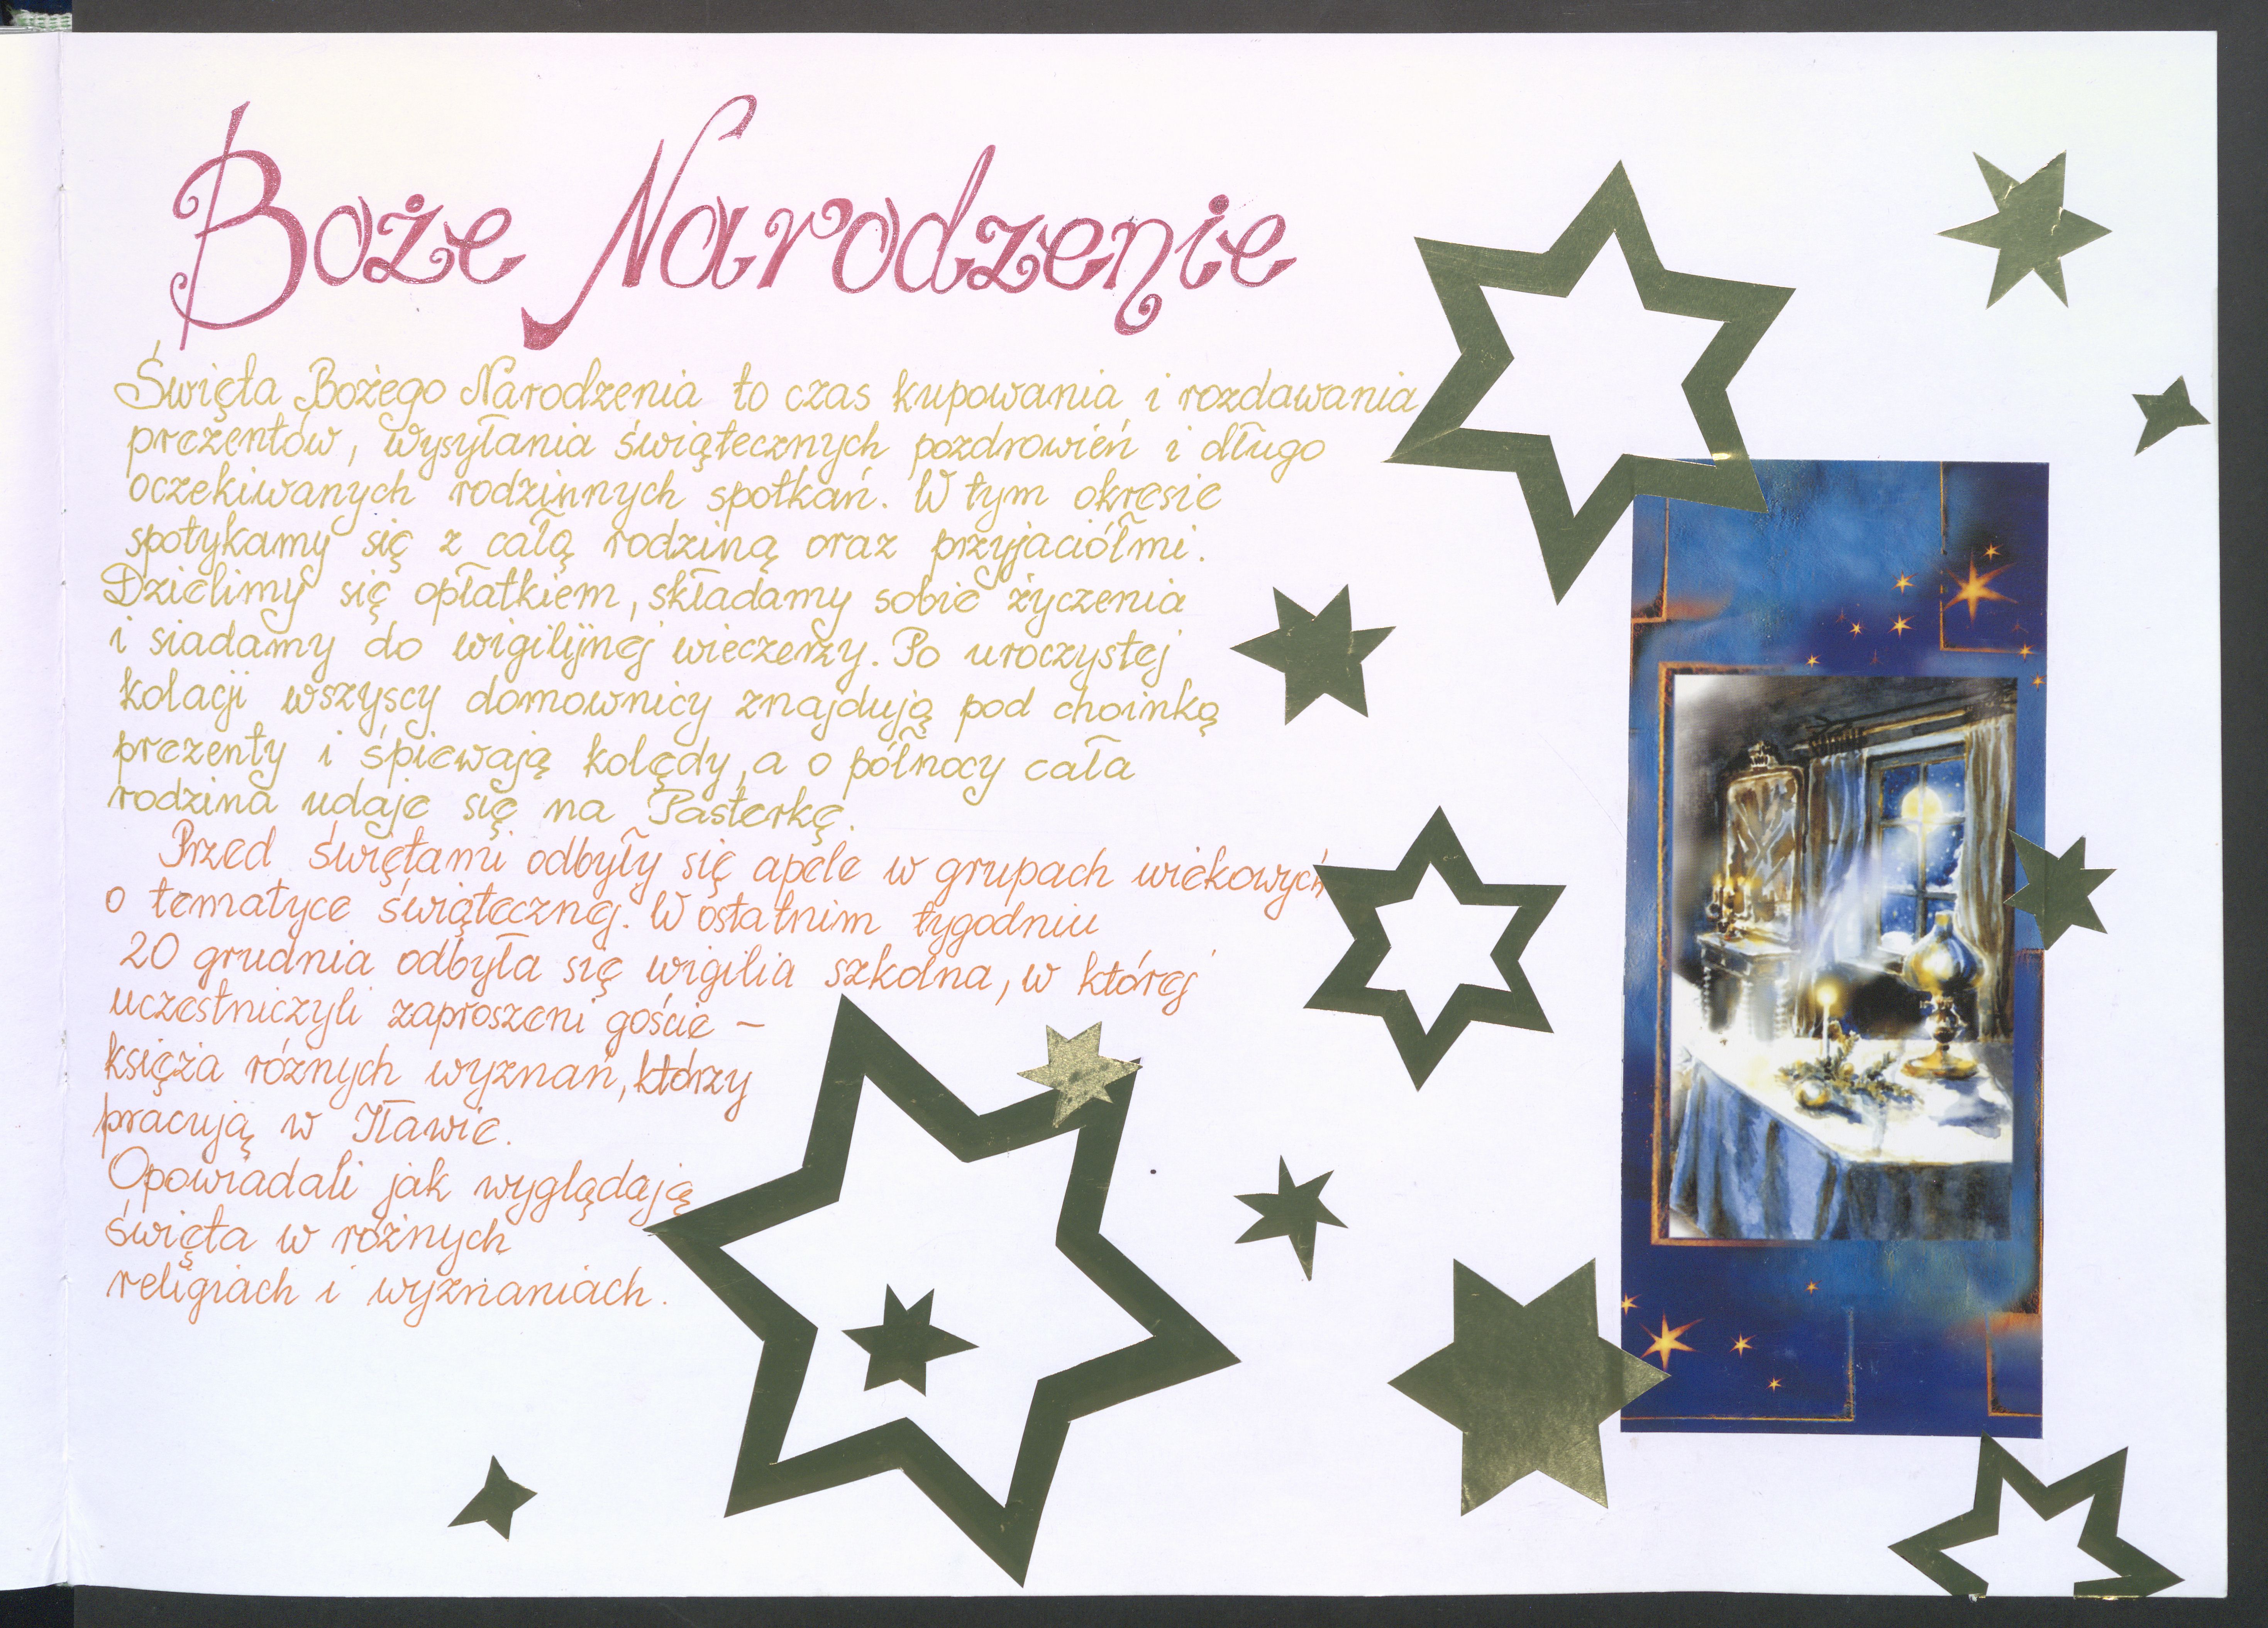 Boże Narodzenie
Święta Bożego Narodzenia to czas kupowania i rozdawania
prezentów, wysyłania świątecznych pozdrowień i długo
oczekiwanych rodzinnych spotkań. W tym okresie
spotykamy się z całą rodziną oraz przyjaciółmi.
Dzielimy się opłatkiem, składamy sobie życzenia
i siadamy do wigilijnej wieczerzy. Po uroczystej
kolacji wszyscy domownicy znajdują pod choinką
prezenty i śpiewają kolędy, a o północy cała
rodzina udaje się na Pasterkę.
Przed świętami odbyły się apele w grupach wiekowych
o tematyce świątecznej. W ostatnim tygodniu
20 grudnia odbyła się wigilia szkolna, w której
uczestniczyli zaproszeni goście -
księża różnych wyznań, którzy
pracują w Iławie.
Opowiadali jak wyglądają
święta w różnych
religiach i wyznaniach.